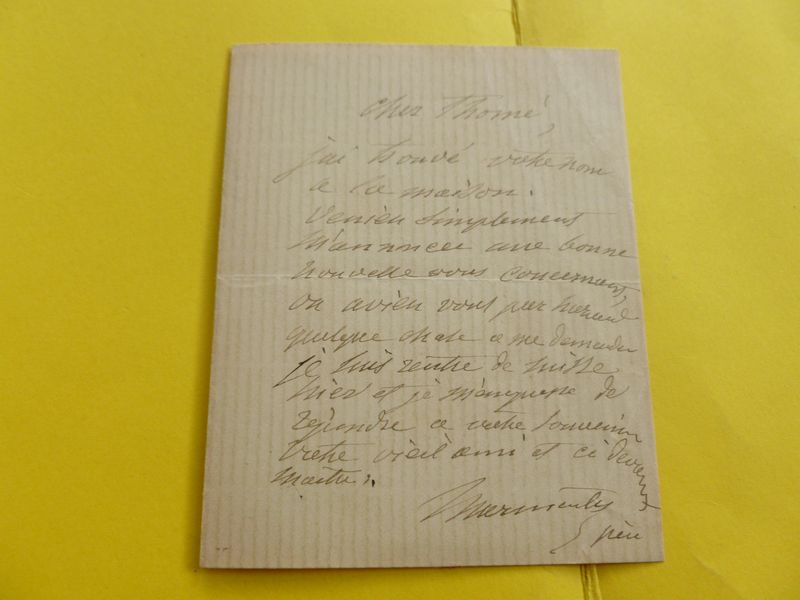 cher Thomé,
j'ai trouvé votre nom
a la maison.
Veniez simplement
m'annoncer une bonne
nouvelle vous concernant,
ou aviez vous par hasard
quelque chose a me demander
je suis rentré de suisse
hier et je m'empresse de
répondre a votre souvenir
Votre vieil ami et ci devant
maitre.
Marmontel
père